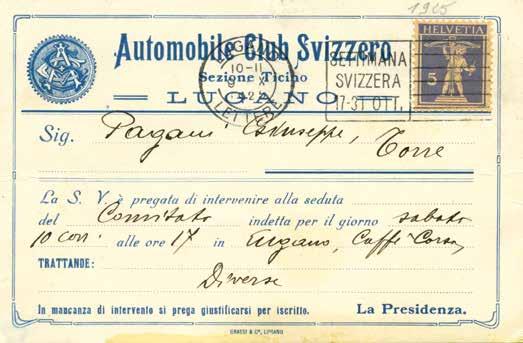 1905
Automobile Club Svizzero
Sezione Ticino
LUGANO
LUGANO
10-11
9 X
42
LETTERE
SETTIMANA
SVIZZERA
17-31 OTT.
HELVETIA
5
Sig. Pagani Giuseppe, Torre
La S. V. è pregata di intervenire alla seduta
del Comitato indetta per il giorno sabato
10 corr. alle ore 17 in Lugano, Caffè Corso,
TRATTANDE:
Diverse
In mancanza di intervento si prega giustificarsi per iscritto. La Presidenza.
GRASSI & Cº, LUGANO